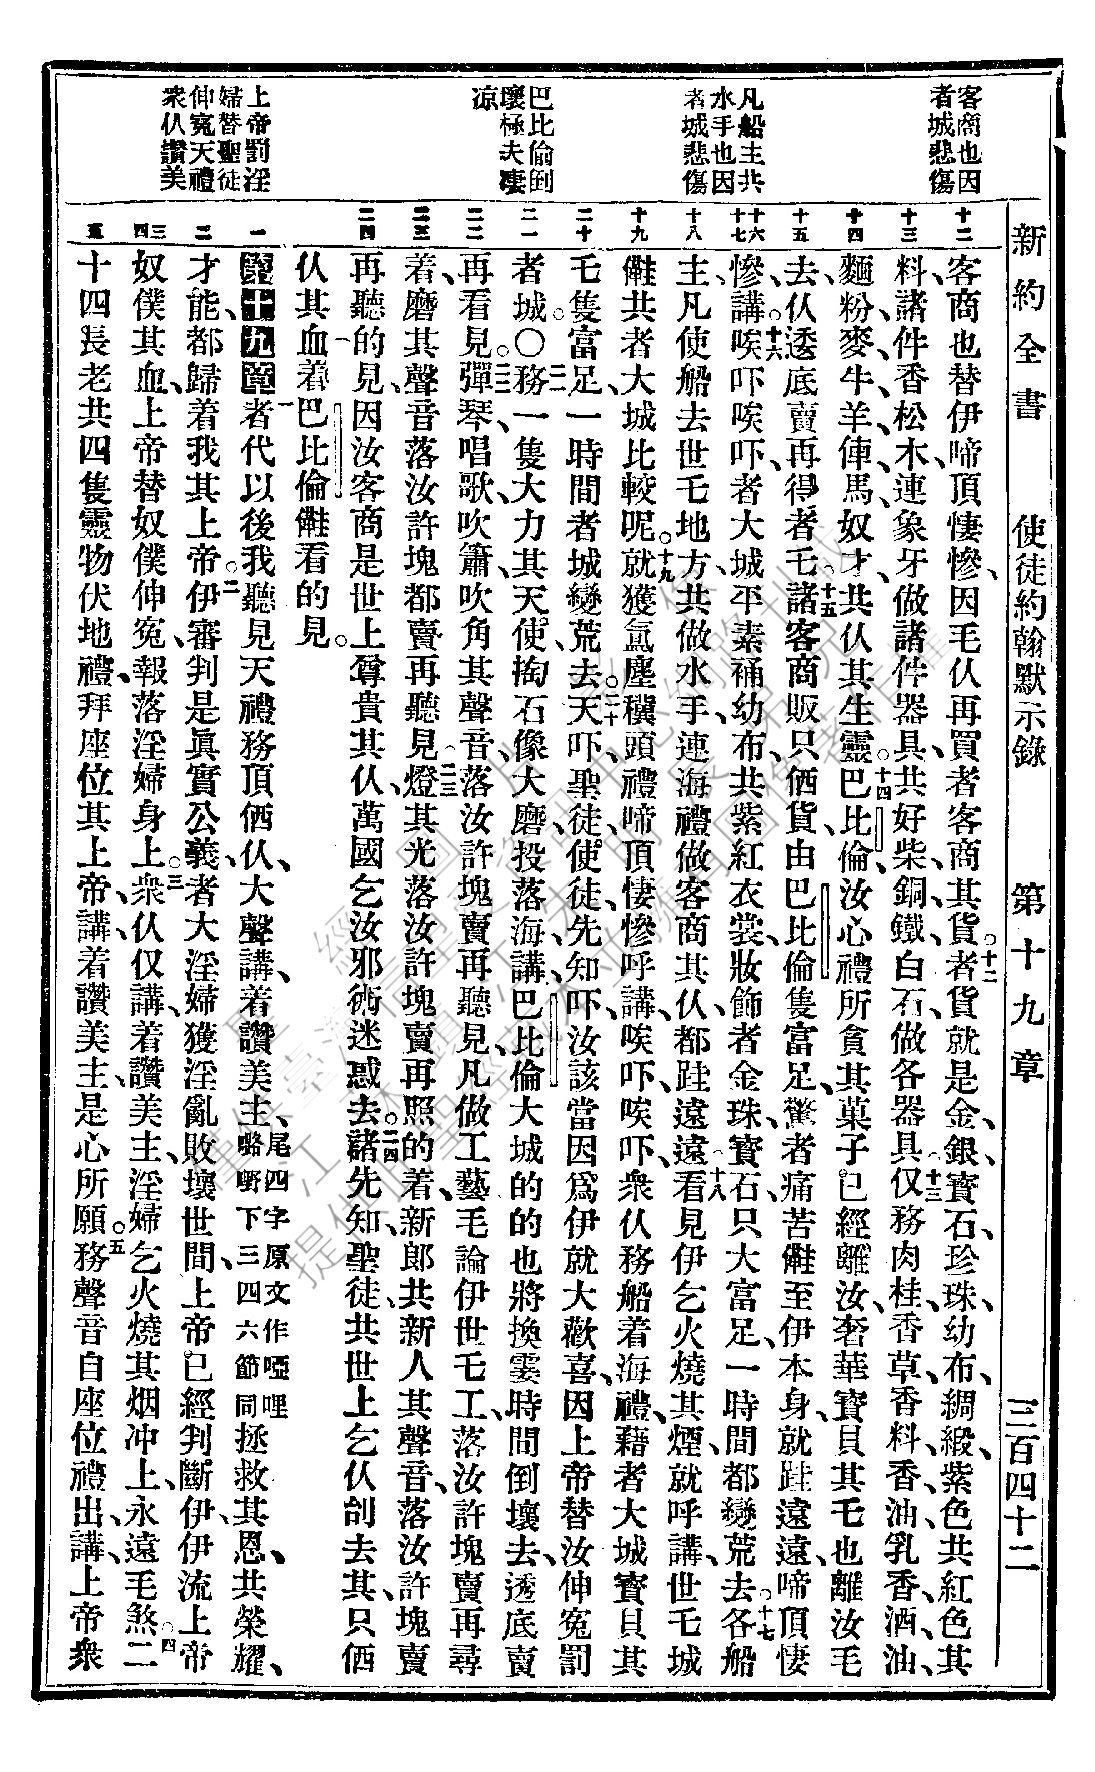 新約全書　使徒約翰默示錄　第十九章　三百四十二
客商也因者城悲傷
凡船主共水手也因者城悲傷
巴比倫倒壞極夫悽凉
上帝罰淫婦替聖徒伸寃天禮衆仈讚美
十二
十三
十四
十五
十六
十七
十八
十九
二十
二一
二二
二三
二四
一
二
三
四
五
客商也替伊啼頂悽慘、因毛仈再買者客商其貨。十二者貨就是金、銀、寶石、珍珠、幼布、綢緞、紫色共紅色其
料、諸件香松木、連象牙做諸件器具、共好柴、銅、鐵、白石做各器具、十三仅務肉桂、香草、香料、香油、乳香、酒、油、
麵粉、麥、牛、羊、俥、馬、奴才、共仈其生靈。十四巴比倫汝心禮所貪其菓子、已經離汝、奢華寶貝其毛也離汝毛
去、仈透底賣再得者毛。十五諸客商販只㑚貨、由巴比倫隻富足、驚者痛苦㑚至伊本身、就跬遠遠、啼頂悽
慘講。十六唉吓、唉吓、者大城平素裲幼布、共紫紅衣裳、妝飾者金珠、寶石、只大富足、一時間都變荒去。十七各船
主、凡使船去世乇地方、共做水手、連海禮做客商其仈、都跬遠遠、十八看見伊乞火燒其煙、就呼講、世乇城
㑚共者大城比較呢。十九就獲氲塵䆐頭禮、啼頂悽慘、呼講、唉吓、唉吓、衆仈務船着海禮、藉者大城寶貝其
乇隻富足、一時間者城變荒去。二十天吓、聖徒、使徒、先知吓、汝該當因爲伊就大歡喜、因上帝替汝伸寃罰
者城。〇二一務一隻大力其天使、掏石像大磨、投落海、講、巴比倫大城的的也將換霎時間倒壞去、透底賣
再看見。二二彈琴、唱歌、吹簫、吹角其聲音、落汝許塊賣再聽見、凡做工藝毛論伊世乇工、落汝許塊賣再尋
着、磨其聲音、落汝許塊都賣再聽見、二三燈其光落汝許塊賣再照的着、新郎共新人其聲音、落汝許塊賣
再聽的見、因汝客商是世上尊貴其仈、萬國乞汝邪術迷惑去。二四諸先知、聖徒、共世上乞仈刣去其、只㑚
仈其血、着巴比倫㑚看的見。
第十九章　一者代以後、我聽見天禮務頂㑚仈、大聲講、着讚美主、尾四字原文作啞哩嚕嘢下三四六節同拯救其恩、共榮耀、
才能、都歸着我其上帝。二伊審判是眞實公義、者大淫婦獲淫亂敗壞世間、上帝已經判斷伊、伊流上帝
奴僕其血、上帝替奴僕伸寃、報落淫婦身上。三衆仈仅講、着讚美主、淫婦乞火燒其烟冲上、永遠毛煞。四二
十四長老、共四隻靈物、伏地禮、拜座位其上帝、講、着讚美主、是心所願。五務聲音自座位禮出、講、上帝衆